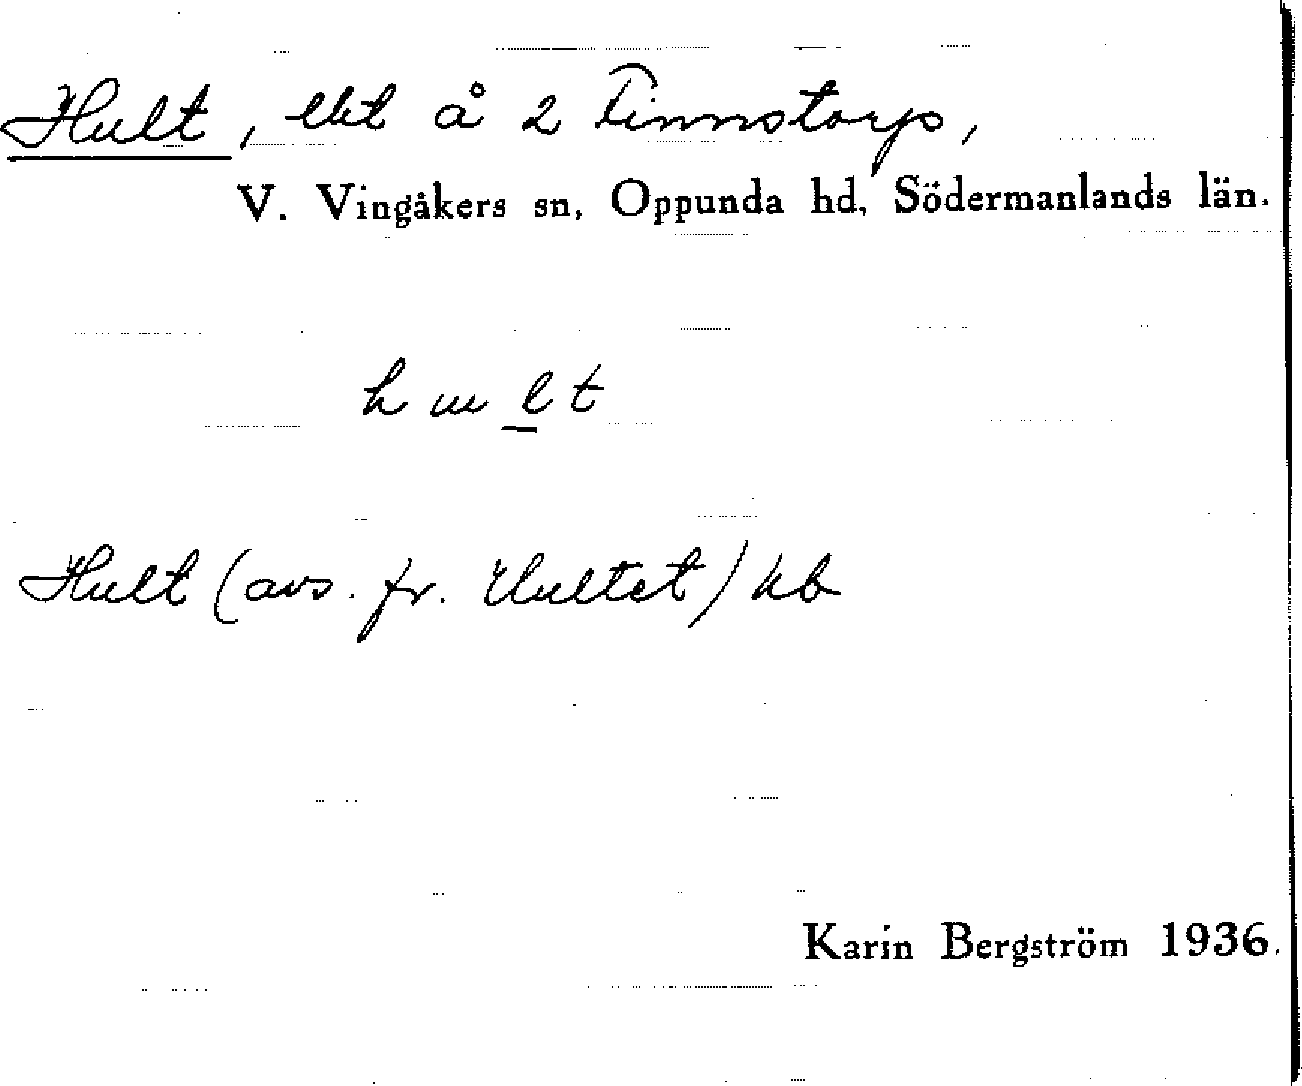 Hult, lht å 2 Finnstorp,
V. Vingåkers sn, Oppunda hd, Södermanlands län.
h ɯ l t
Hult (avs. fr. Hultet) kb
Karin Bergström 1936.